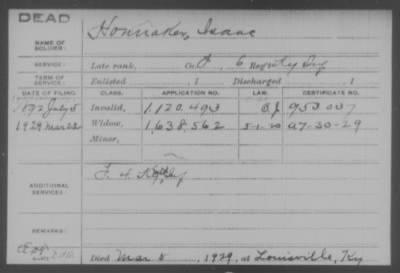 DEAD
NAME OF SOLDIER: Honaker, Isaac
SERVICE: Late rank, Co. 6 Reg't Ky Inf
TERM OF SERVICE: Enlisted , 1 Discharged , 1
DATE OF FILING. CLASS. APPLICATION NO. LAW. CERTIFICATE NO.
1892 July 5 Invalid, 1,120.493 953.007
1929 Mar 22 Widow, 1,638,562 5-1-20 a7-30-29
Minor,
ADDITIONAL SERVICES:
REMARKS:
Died Mar 5, 1929, at Louisville, Ky